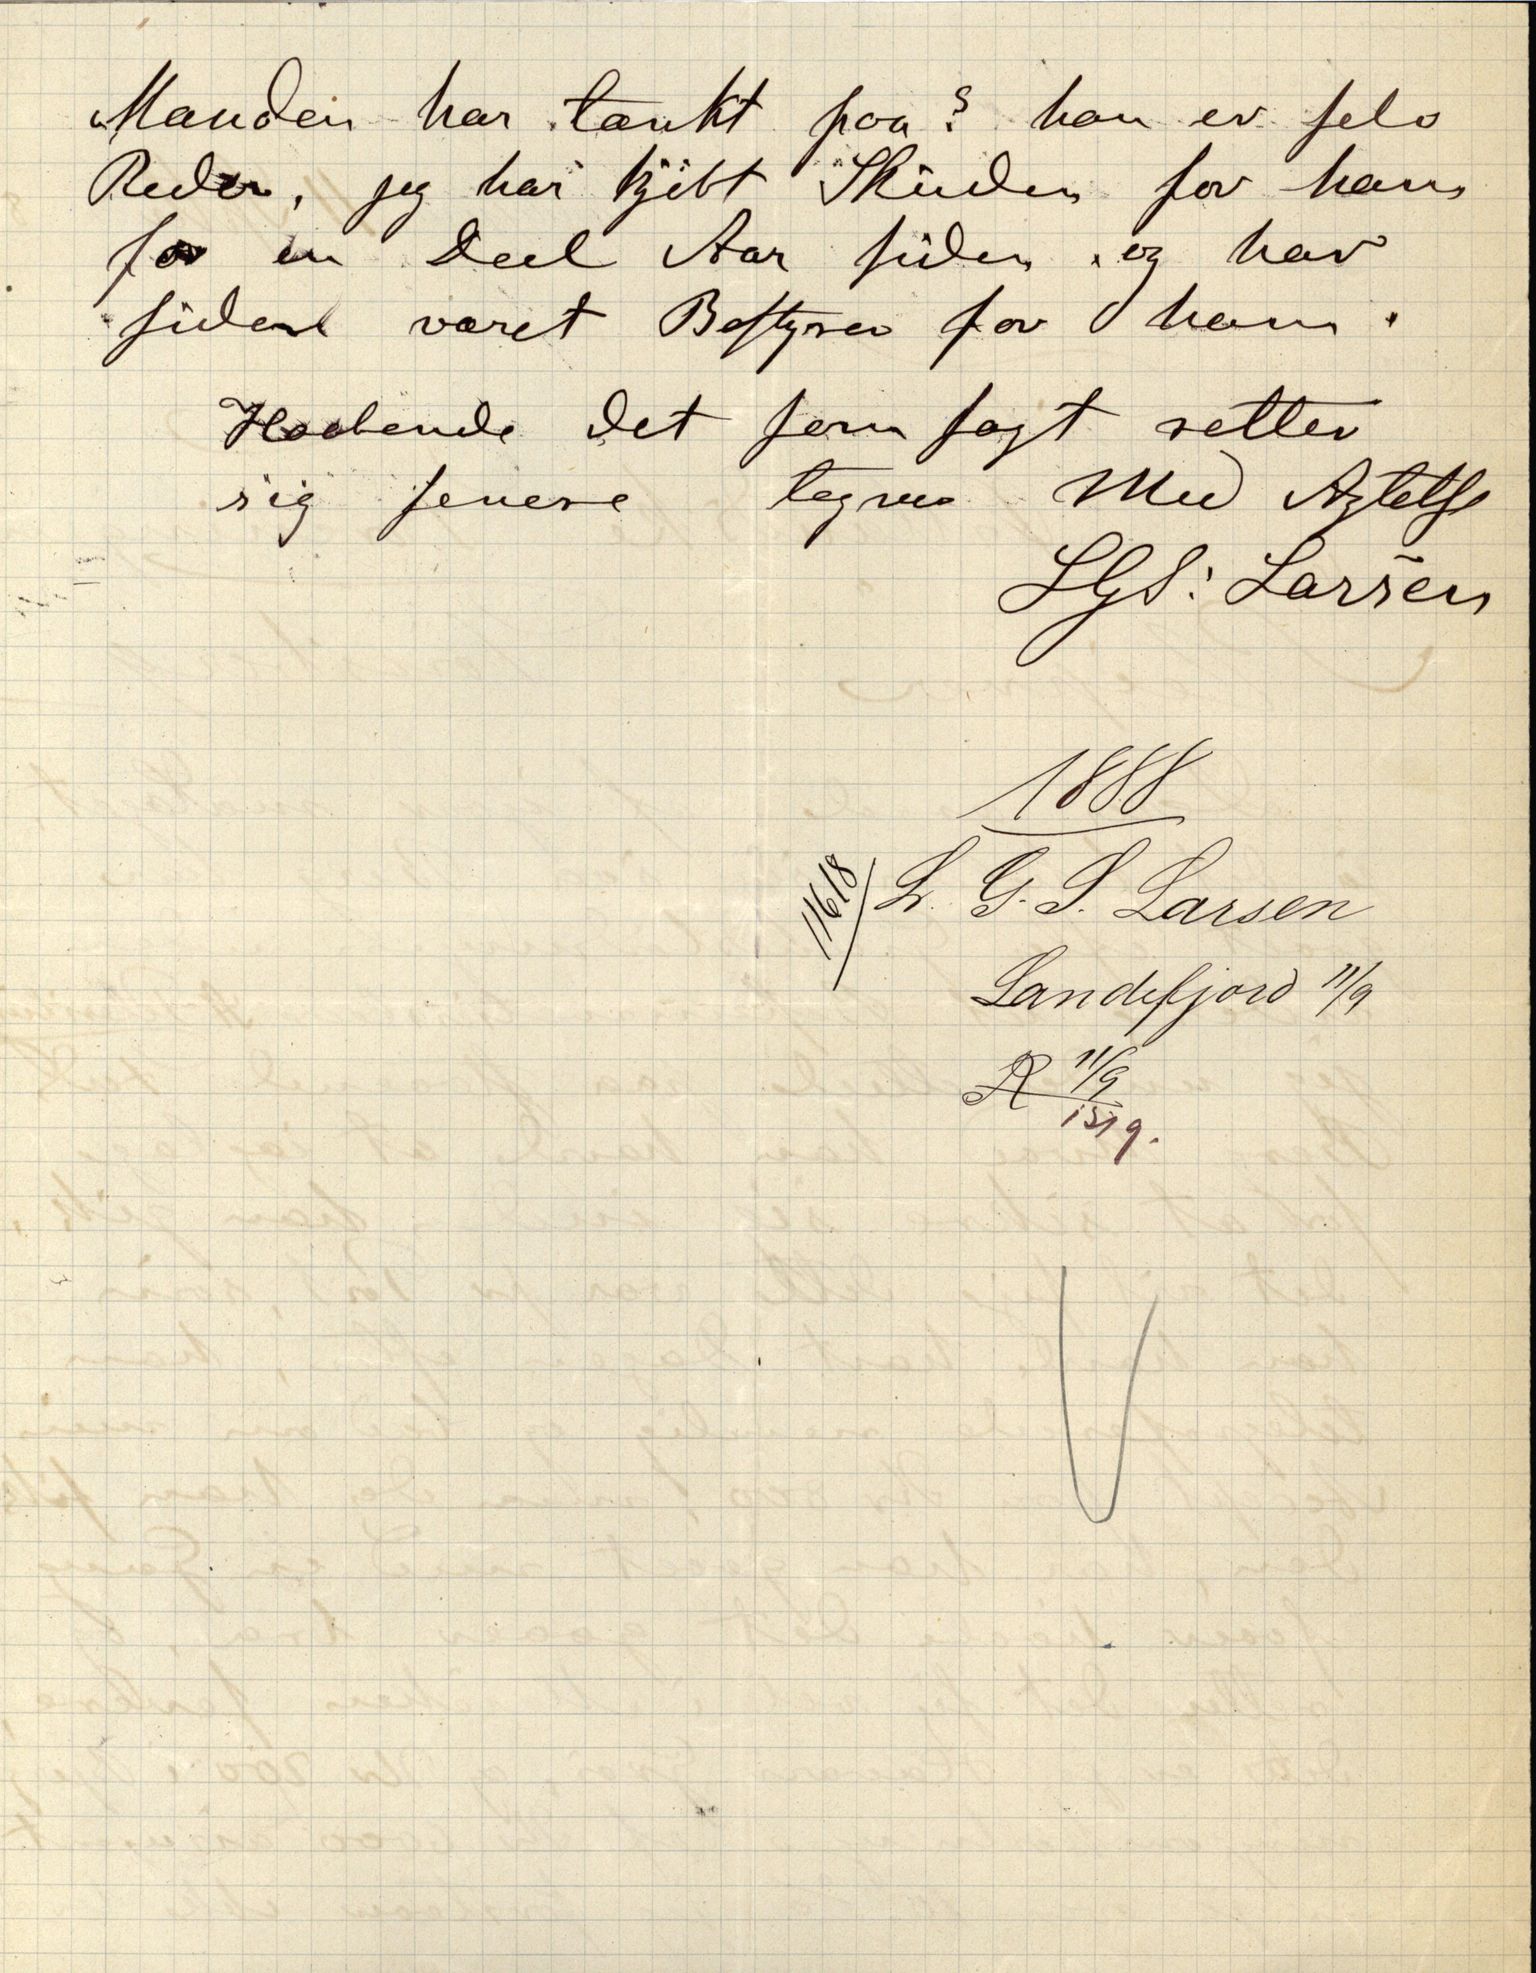 Manden har tænkt paa? han er selv
Reder, jeg har kjöbt Skuden for ham
for en Deel Aar siden og har
siden været Bestyrer for ham.
Haabende det som sagt retter
sig senere tegner Med Agtelse
LGS: Larsen
1888
11618
L. G. S. Larsen
Sandefjord 11/9
R 11/9